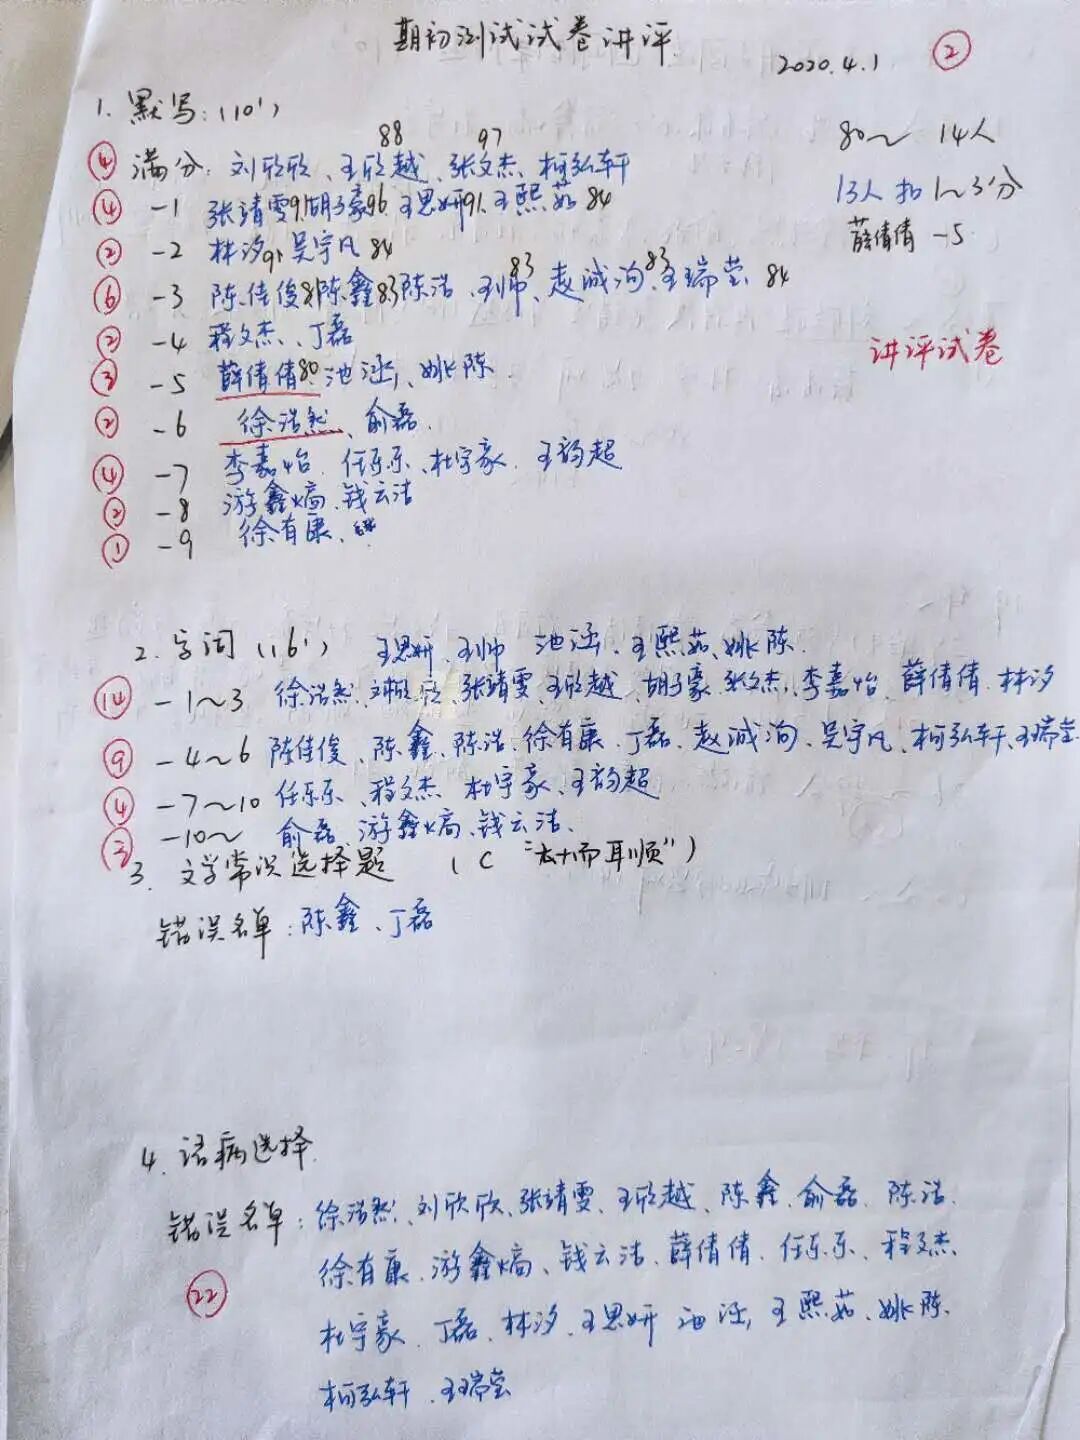 期初测试试卷讲评
2020.4.1 ②
1. 默写：(10')
88 97
80～ 14人
④ 满分：刘欣欣、王欣越、张文杰、柯弘轩
13人扣1～3分
④ -1 张靖雯91、胡子豪96、王思妍91、王熙茹84
薛倩倩 -5
② -2 林汐91、吴宇凡84
83 83
⑥ -3 陈佳俊81陈鑫83陈浩、王帅、赵诚洵、王瑞莹 84
② -4 程文杰、丁磊
讲评试卷
③ -5 薛倩倩80、池涵、姚陈
② -6 徐浩然、俞磊
④ -7 李嘉怡、任乐乐、杜宇豪、王韵超
② -8 游鑫熇、钱云洁
① -9 徐有康、
2. 字词(16') 王思妍、王帅 池涵、王熙茹、姚陈
⑭ -1～3 徐浩然、刘欣欣、张靖雯、王欣越、胡子豪、张文杰、李嘉怡、薛倩倩、林汐
⑨ -4～6 陈佳俊、陈鑫、陈浩、徐有康、丁磊、赵诚洵、吴宇凡、柯弘轩、王瑞莹
④ -7～10 任乐乐、程文杰、杜宇豪、王韵超
③ -10～ 俞磊、游鑫熇、钱云洁、
3. 文学常识选择题 (C “六十而耳顺”)
错误名单：陈鑫、丁磊
4. 语病选择
错误名单：徐浩然、刘欣欣、张靖雯、王欣越、陈鑫、俞磊、陈浩、
徐有康、游鑫熇、钱云洁、薛倩倩、任乐乐、程文杰、
㉒ 杜宇豪、丁磊、林汐、王思妍、池涵、王熙茹、姚陈、
柯弘轩、王瑞莹